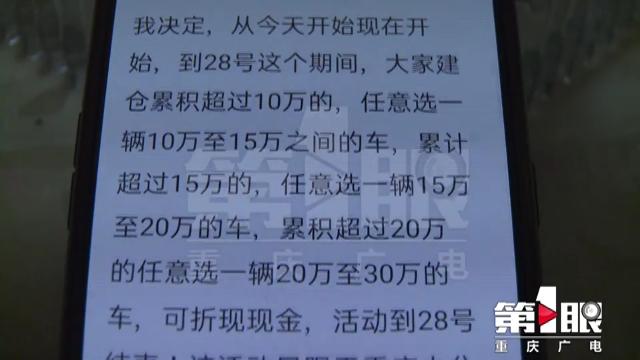 我决定，从今天开始现在开
始，到28号这个期间，大家建
仓累积超过10万的，任意选一
辆10万至15万之间的车，累计
超过15万的，任意选一辆15万
至20万的车，累积超过20万
的任意选一辆20万至30万的
车，可折现现金，活动到28号
第1眼
重庆广电
第1眼
重庆广电